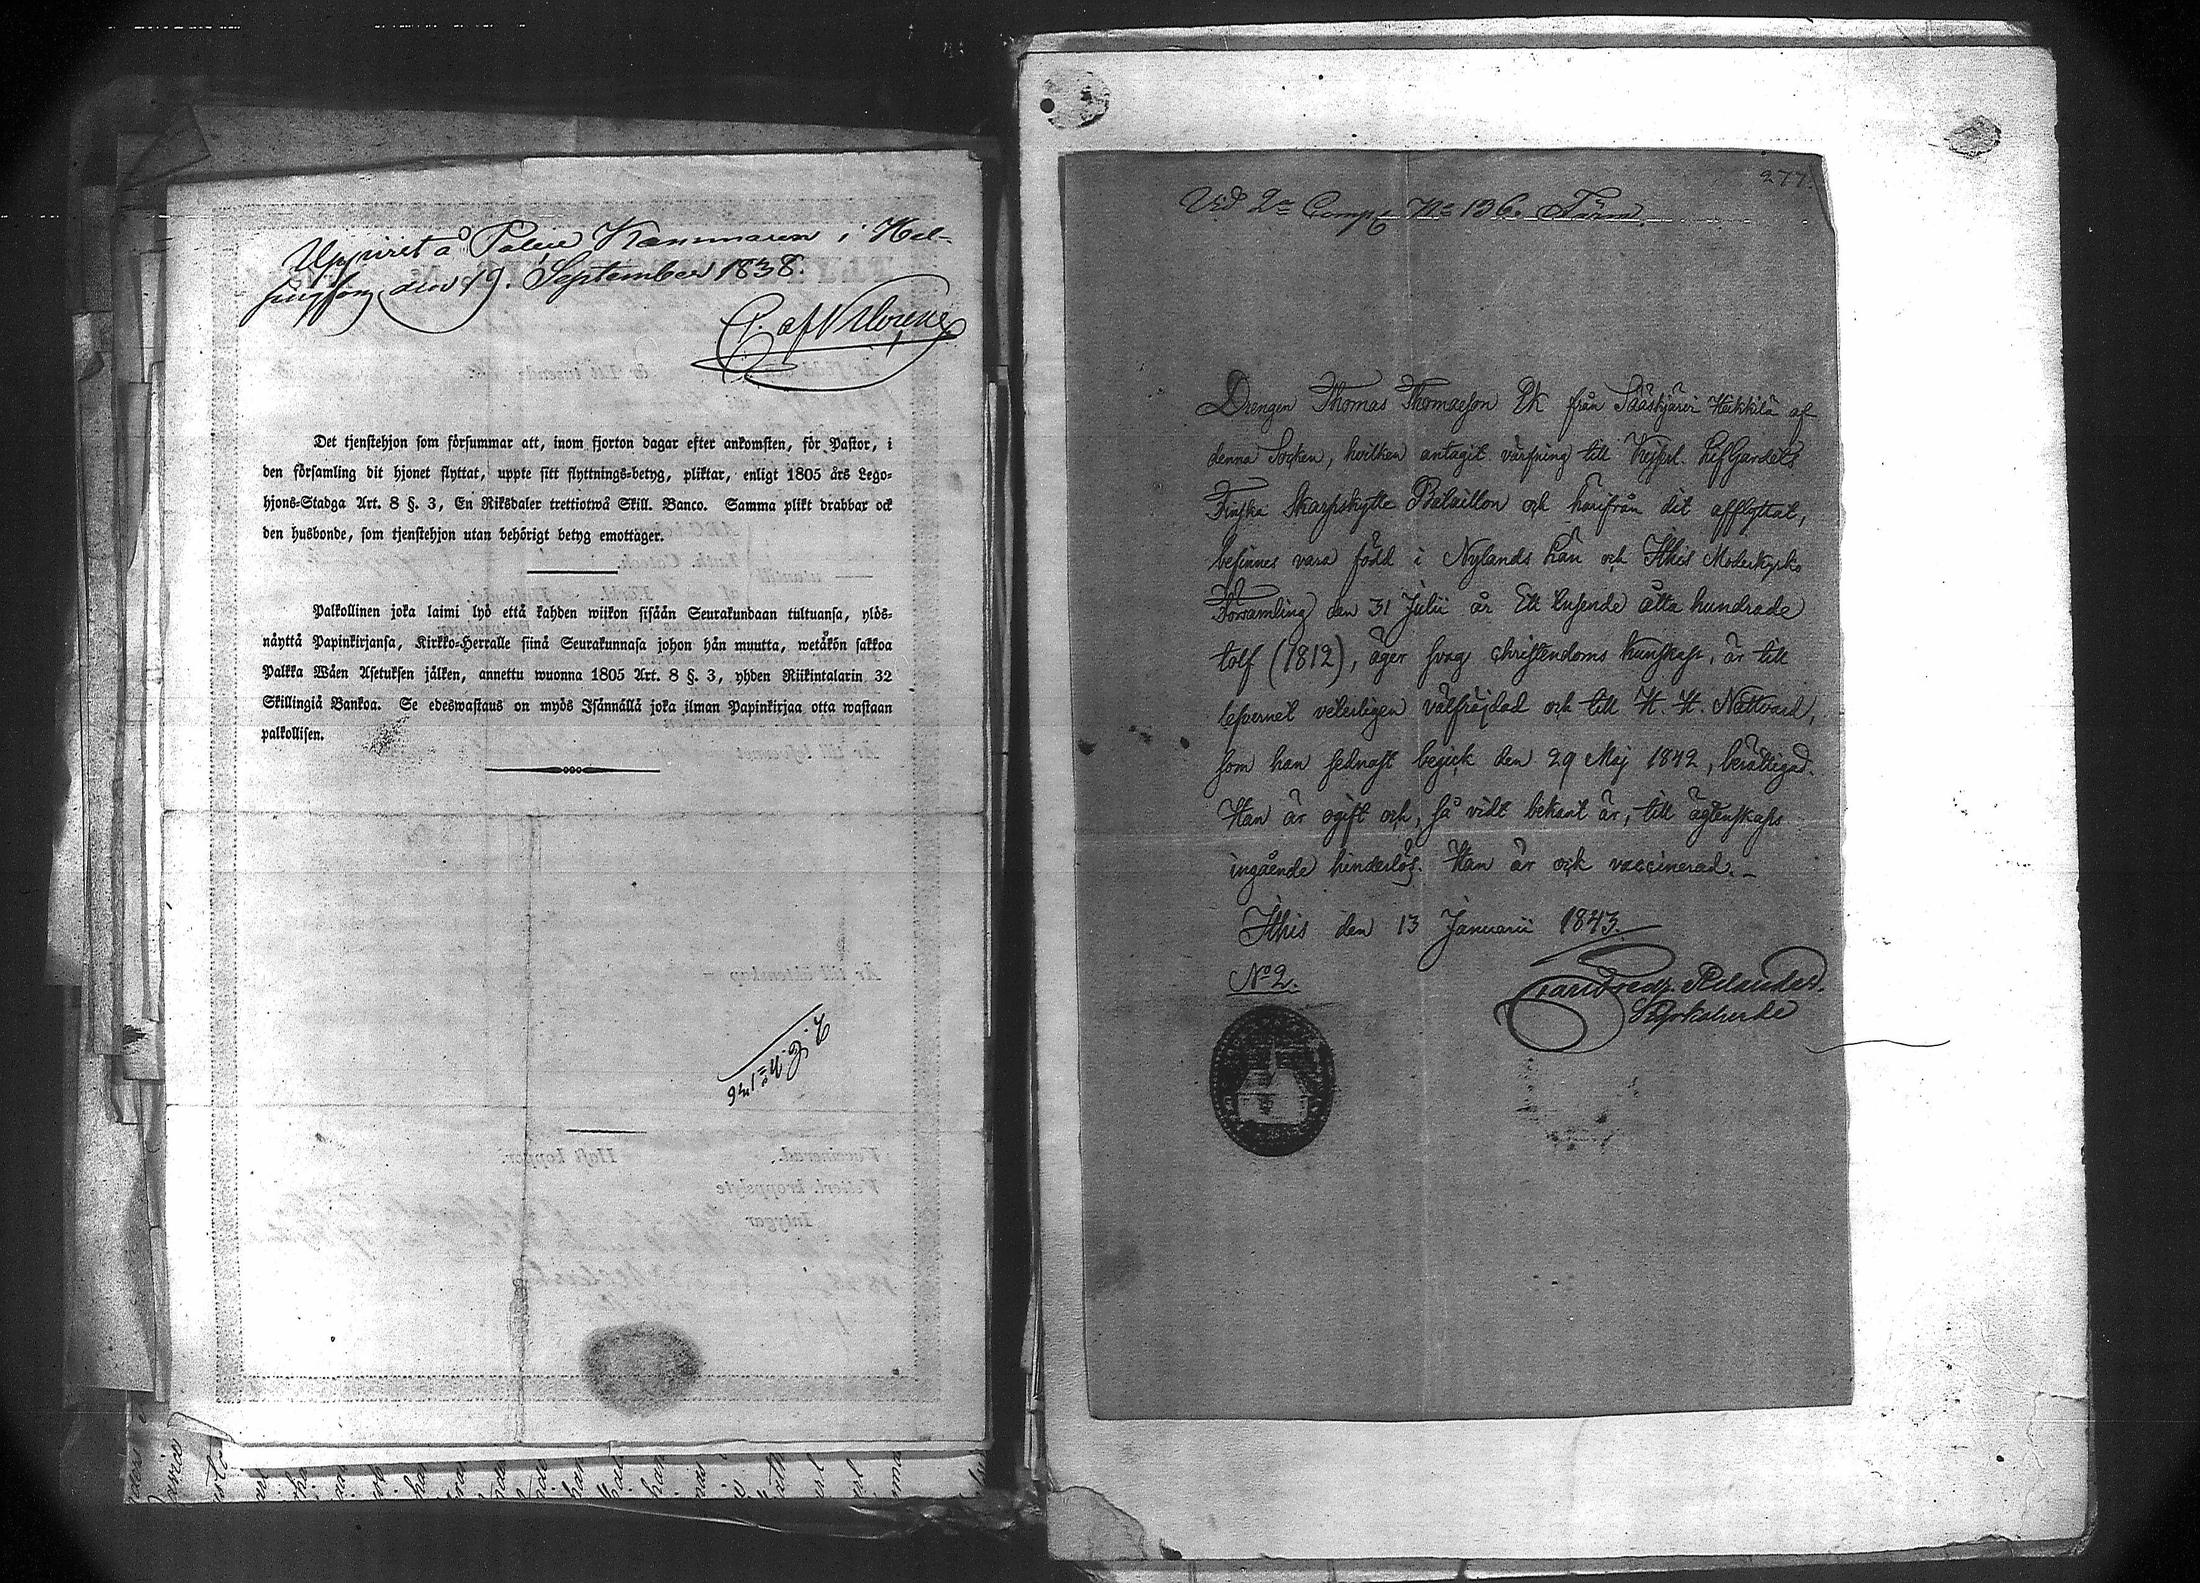 Uppvist å Police Kammaren i Hel-
singfors den 19. September 1838.
Det tjenstehjon som försummar att, inom fjorton dagar efter ankomsten, för Pastor, i
den församling dit hjonet flyttat, uppte sitt flyttnings-betyg, pliktar, enligt 1805 års Lego-
hjons-Stadga Art. 8 §. 3, En Riksdaler trettiotwå Skill. Banco. Samma plikt drabbar ock
den husbonde, som tjenstehjon utan behörigt betyg emottager.
Palkollinen joka laimi lyö että kahden wiikon sisään Seurakundaan tultuansa, ylös-
näyttä Papinkirjansa, Kirkko-Herralle siinä Seurakunnasa johon hän muutta, wetäkön sakkoa
Palkka Wäen Asetuksen jälken, annettu wuonna 1805 Art. 8 §. 3, yhden Riikintalarin 32
Skillingiä Bankoa. Se edeswastaus on myös Isännällä joka ilman Papinkirjaa otta wastaan
palkollisen.
2. C. No 136
277.
Vid 2a Comp. No 136. Törn
Drengen Thomas Thomaeson Ek från Sääskjärvi Heikkilä af
denna Socken, hvilken antagit värfning till Kejserl. LifGardets
Finska Skarpskytte Bataillon och härifrån dit afflyttat,
befinnes vara född i Nylands Län och Ithis Moderkyrko
Församling den 31 Julii år Ett tusende åtta hundrade
tolf (1812), äger svag christendoms kunskap, är till
lefvernet veterligen välfräjdad och till H. H. Nattvard,
som han sednast begick den 29 Maj 1842, berättigad.
Han är ogift och, så vidt bekant är, till ägtenskaps
ingående hinderlös. Han är ock vaccinerad. –
Ithis den 13 Januarii 1843.
No 2.
Carl Fredr. Relander.
Kyrkoherde